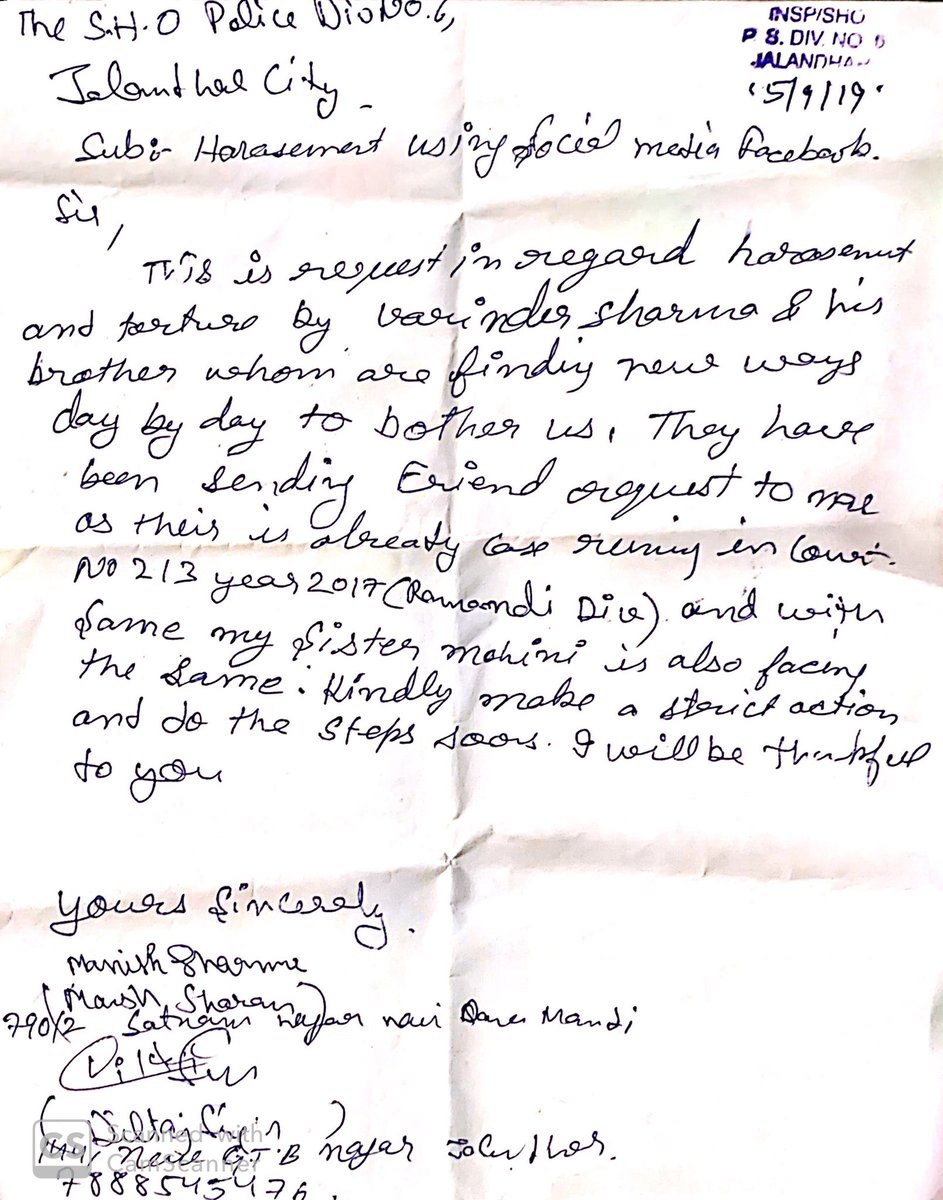 The S.H.O Police Div No. 6,
INSP/SHO
P S. DIV. NO 6
JALANDHA
5/9/19
Jalandhar City
Sub:- Harasement using social media facebook.
Sir,
This is request in regard harasement
and torture by varinder sharma & his
brother whom are findiy new ways
day by day to bother us. They have
been sending Friend request to me
as their is already case runing in court.
No 213 year 2017 (Ramandi Div) and with
same my sister mohini is also facing
the same. Kindly make a strict action
and do the steps soon. I will be thankful
to you
yours sincerely.
Manish Sharma
(Manish Sharma)
790/2 Satnam nagar navi Dana Mandi
(Diltaj Singh)
New G.T.B nagar Jalandhar.
7888545476.
CS Scanned with
CamScanner